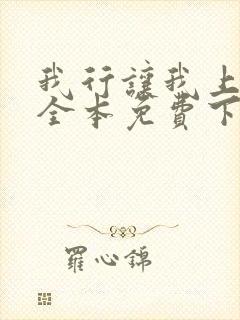 我行讓我上
全本免費下
羅心錦